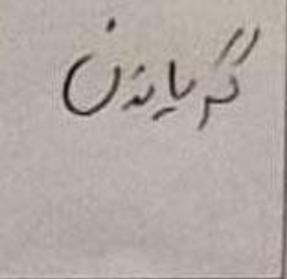 گریاندن